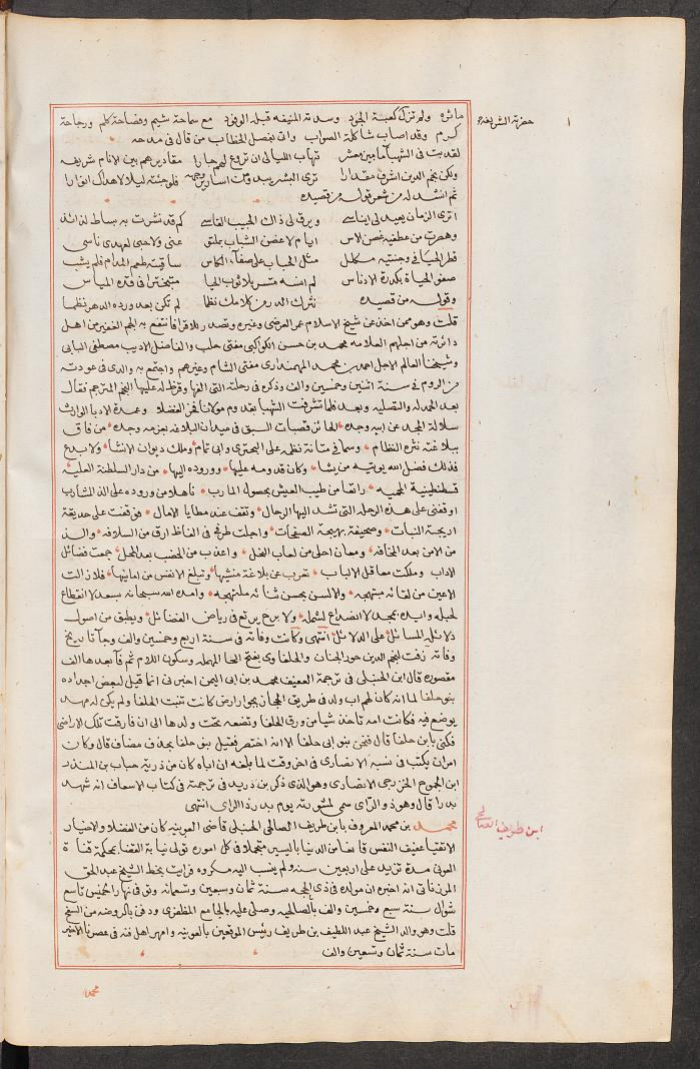 مآثره ولم تزل كعبة الجود وسدته المنيفه قبلة الوفود مع سماحة شيم وفصاحة كلم ورجاحة
حضرته الشريفة
كرم وقد اصاب شاكلة الصواب واتى بفصل الخطاب من قال في مدحه
لقد بت في الشهبا ما بين معشر تهاب الليالي ان تروع لهم جارا مقاديرهم بين الانام شريفه
ولكن نجم الدين اشرف مقدارا ترى البشر يبدو من اسارير وجهه فلو جئته ليلا لاهداك انوارا
ثم انشد له من شعره قوله من قصيده
اترى الزمان يعيد لي ايناسي ويرق لي ذاك الحبيب القاسي كم قد نشرت به بساط لذائذ
وهصرت من عطفيه غصن الاس ايام لا غصن الشباب بملتو عني ولا حبي لعهدي ناسي
قطر الحيا في وجنتيه مكلل مثل الحباب على صفاء الكاس ساقيته طعم المدام فلم يشب
صفو الحياة بكدرة الادناس لم انسه متسربلا ثوب الحيا متبخترا في قده المياس
وقوله من قصيده نثرك الدر من كلامك نظما لم تكن بعد ورده الدهر نظما
قلت وهو ممن اخذ عن شيخ الاسلام عمر العرضي وغيره وتصدر للاقرا فانتفع به الجم الغفير من اهل
دائرته من اجلهم العلامه محمد بن حسن الكواكبي مفتي حلب والفاضل الاديب مصطفى البابي
وشيخنا العالم الاجل احمد بن محمد المهمنداري مفتي الشام وغيرهم واجتمع به والدي في عودته
من الروم في سنة اثنين وخمسين والف وذكره في رحلته التي الفها وقرظ له عليها النجم المترجم فقال
بعد الحمدله والتصليه وبعد فلما تشرفت الشهبا بقدوم مولانا فخر الفضلا وعمدة الادبا الوارث
سلالة المجد عن ابيه وجده الحائز قصبات السبق في ميدان البلاغه بعزمه وجده من فاق
ببلاغته نثره النظام وسما في متانة نظمه على البحتري وابي تمام وملك ديوان الانشا ولا بدع
فذلك فضل الله يوتيه من يشا وكان قدومه عليها ووروده اليها من دار السلطنة العليه
قسطنطينية المحميه رائقا من طيب العيش بحصول المارب ناهلا من وروده على الذ المشارب
اوقفني على هذه الرحله التي تشد اليها الرحال وتقف عند مطايا الامال فوقفت على حديقة
اريجة النبات وصحيفة بهيجة الصفحات واجلت طرفي في الفاظ ارق من السلافه والذ
من الامن بعد المخافه ومعان احلى من لعاب النحل واعذب من الخصب بعد المحل جمعت فضائل
الاداب وملكت معاقل الالباب تعرب عن بلاغة منشيها وتبلغ الانفس من امانيها فلا زالت
الاعين من لقائه مبتهجه والالسن بحسن ثنائه ملتهجه وامده الله سبحانه بسعد لا انقطاع
لحبله وايده بمجد لا انصداع لشمله ولا برح يرتع في رياض الفضائل ويطبق من اصول
دلائله المسائل على الدلائل انتهى وكانت وفاته في سنة اربع وخمسين والف وجا تاريخ
وفاته زفت لنجم الدين حور الجنان والحلفاوي بفتح الحا المهمله وسكون اللام ثم فا بعدها الف
مقصوره قال ابن الحنبلي في ترجمة العفيف محمد بن ابي اليمن اخبرني انما قيل لبعض اجداده
بنو حلفا لما انه كان لهم اب ولد في طريق الحجاز بجوار ارض كانت تنبت الحلفا ولم يكن له مهد
يوضع فيه فكانت امه تاخذ شيا من ورق الحلفا وتضعه تحت ولدها الى ان فارقت تلك الاراضي
فكني بابن حلفا قال فنحن بنو ابي حلفا الا انه اختصر فقيل بنو حلفا بحذف مضاف قال وكان
امران يكتب في نسبه الانصاري في اخر وقت لما بلغه ان اباه كان من ذرية حباب بن المنذر
ابن الجموح الخزرجي الانصاري وهو الذي ذكر بن دريد في ترجمة في كتاب الاسعاف انه شهد
بدرا قال وهو ذو الراي سمي لمشورته يوم بدر ذا الراي انتهى
محمد بن محمد المعروف بابن طريف الصالحي الحنبلي قاضي العونيه كان من الفضلا والاخيار
ابن طريف الصالحي
الاتقيا عفيف النفس قانعا من الدنيا باليسير متجملا في كل اموره تولى نيابة القضا بمحكمة قناة
العوني مدة تزيد على اربعين سنه ولم ينسب اليه مكروه قرات بخط الشيخ عبد الحق
المرزناتي انه اخبره ان مولده في ذي الحجه سنة ثمان وسبعين وتسعمائه وتوفي نهار الخميس تاسع
شوال سنة سبع وخمسين والف بالصالحيه وصلى عليه بالجامع المظفري ودفن بالروضه من السفح
قلت وهو والد الشيخ عبد اللطيف بن طريف رئيس الموقعين بالعونيه وامهر اهل فنه في عصرنا الاخير
مات سنة ثمان وتسعين والف
محمد